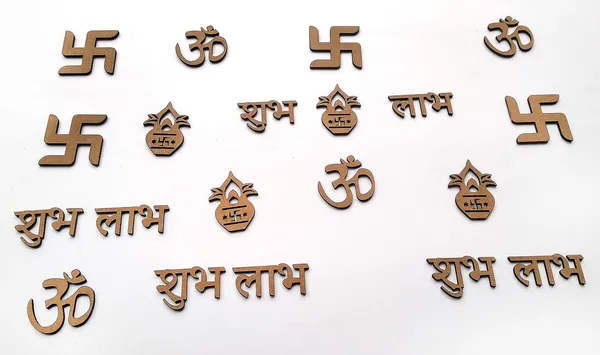 ॐ ॐ
शुभ लाभ
ॐ
शुभ लाभ
शुभ लाभ शुभ लाभ
ॐ